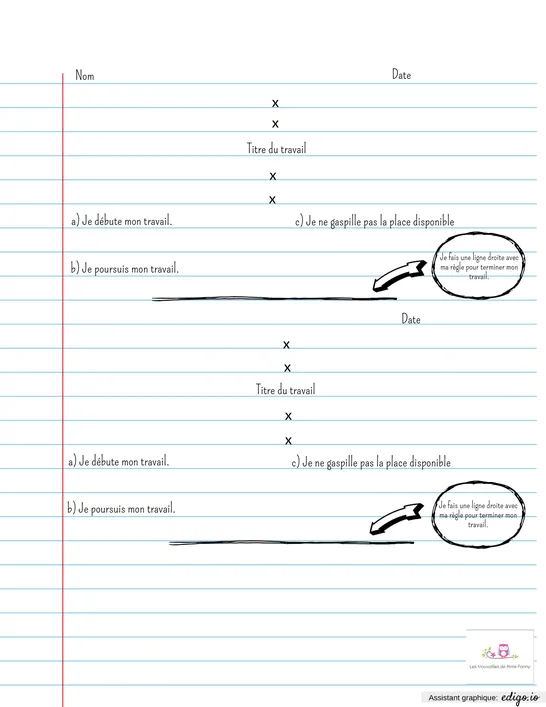 Nom Date
x
x
Titre du travail
x
x
a) Je débute mon travail. c) Je ne gaspille pas la place disponible
Je fais une ligne droite avec
ma règle pour terminer mon
travail.
b) Je poursuis mon travail.
Date
x
x
Titre du travail
x
x
a) Je débute mon travail. c) Je ne gaspille pas la place disponible
Je fais une ligne droite avec
ma règle pour terminer mon
travail.
b) Je poursuis mon travail.
Les Trouvailles de Mme Fanny
Assistant graphique: edigo.io